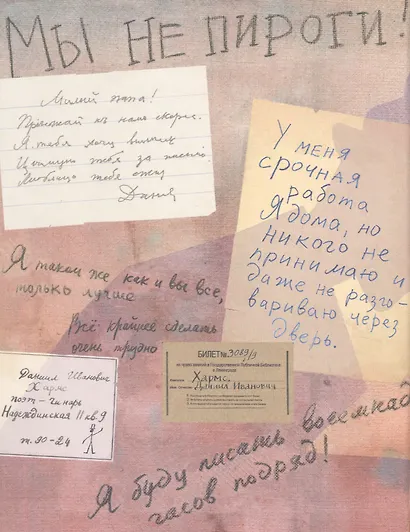 Мы не пироги!
Милый папа!
Приезжай къ намъ скорее.
Я тебя хочу
Целую тебя за
тебя
Даня
У меня
срочная
работа
Я дома, но
никого не
принимаю и
даже не разго-
вариваю через
дверь.
Я такой же как и вы все,
только лучше
Всё крайнее сделать
очень трудно
Даниил Иванович
Хармс
поэт-чинарь
Надеждинская 11 кв 9
т. 90-24
БИЛЕТ № 3089/9
Хармс
Даниил Иванович
Я буду писать восемнад
часов подряд!